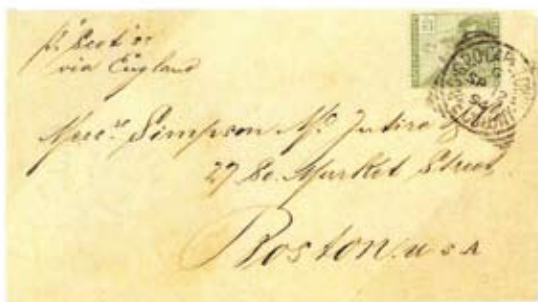 pr "Scot"
via England
Messrs Simpson Mc Intire &
27 So. Market Street
Boston U S A